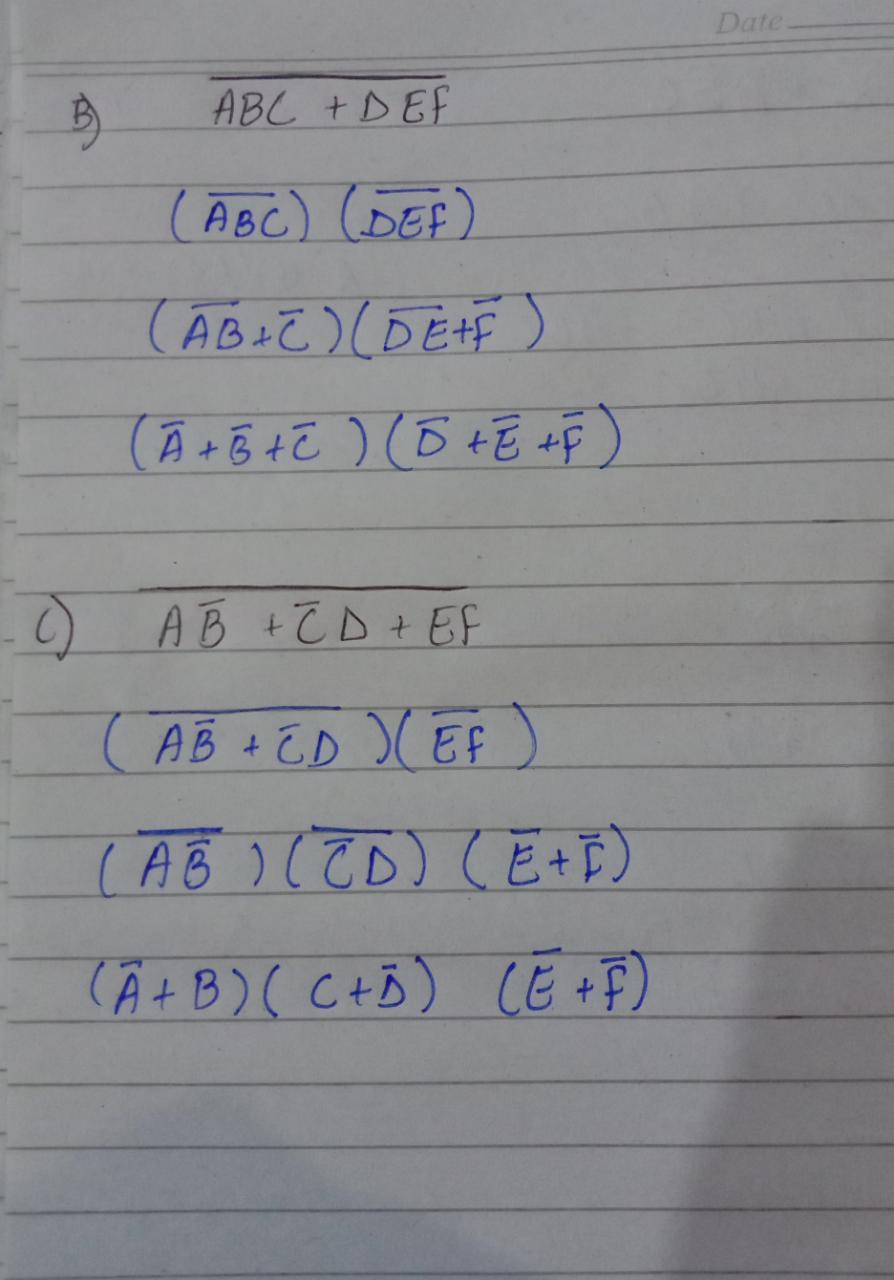 Date
B) \overline{ABC + DEF}
(\overline{ABC}) (\overline{DEF})
(\overline{AB}+\overline{C})(\overline{DE}+\overline{F})
(\overline{A}+\overline{B}+\overline{C})(\overline{D}+\overline{E}+\overline{F})
C) \overline{A\overline{B} + \overline{C}D + EF}
(\overline{A\overline{B} + \overline{C}D})(\overline{EF})
(\overline{A\overline{B}})(\overline{\overline{C}D}) (\overline{E}+\overline{F})
(\overline{A}+B)(C+\overline{D}) (\overline{E}+\overline{F})